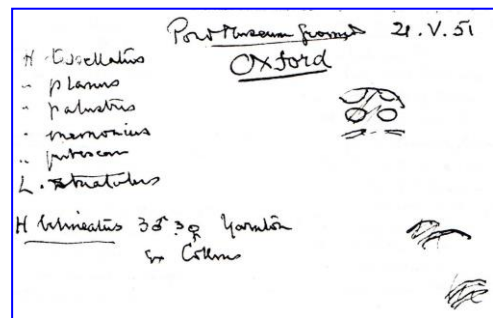 Pond Museum grounds 21.V.51
Oxford
H.
" planus
" palustris
" memnonius
" pubescens
L. striatulus
H bilineatus 3♂ 3♀ Yarnton
Collins